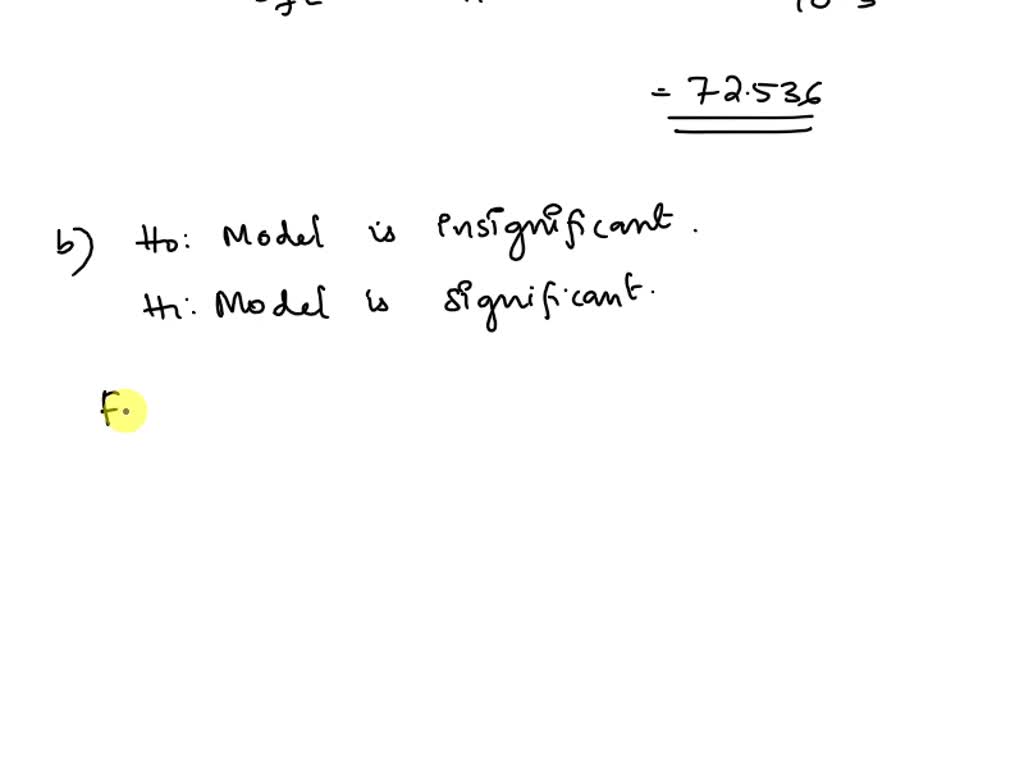 = 72.536
b) H0: Model is insignificant.
H1: Model is significant.
F